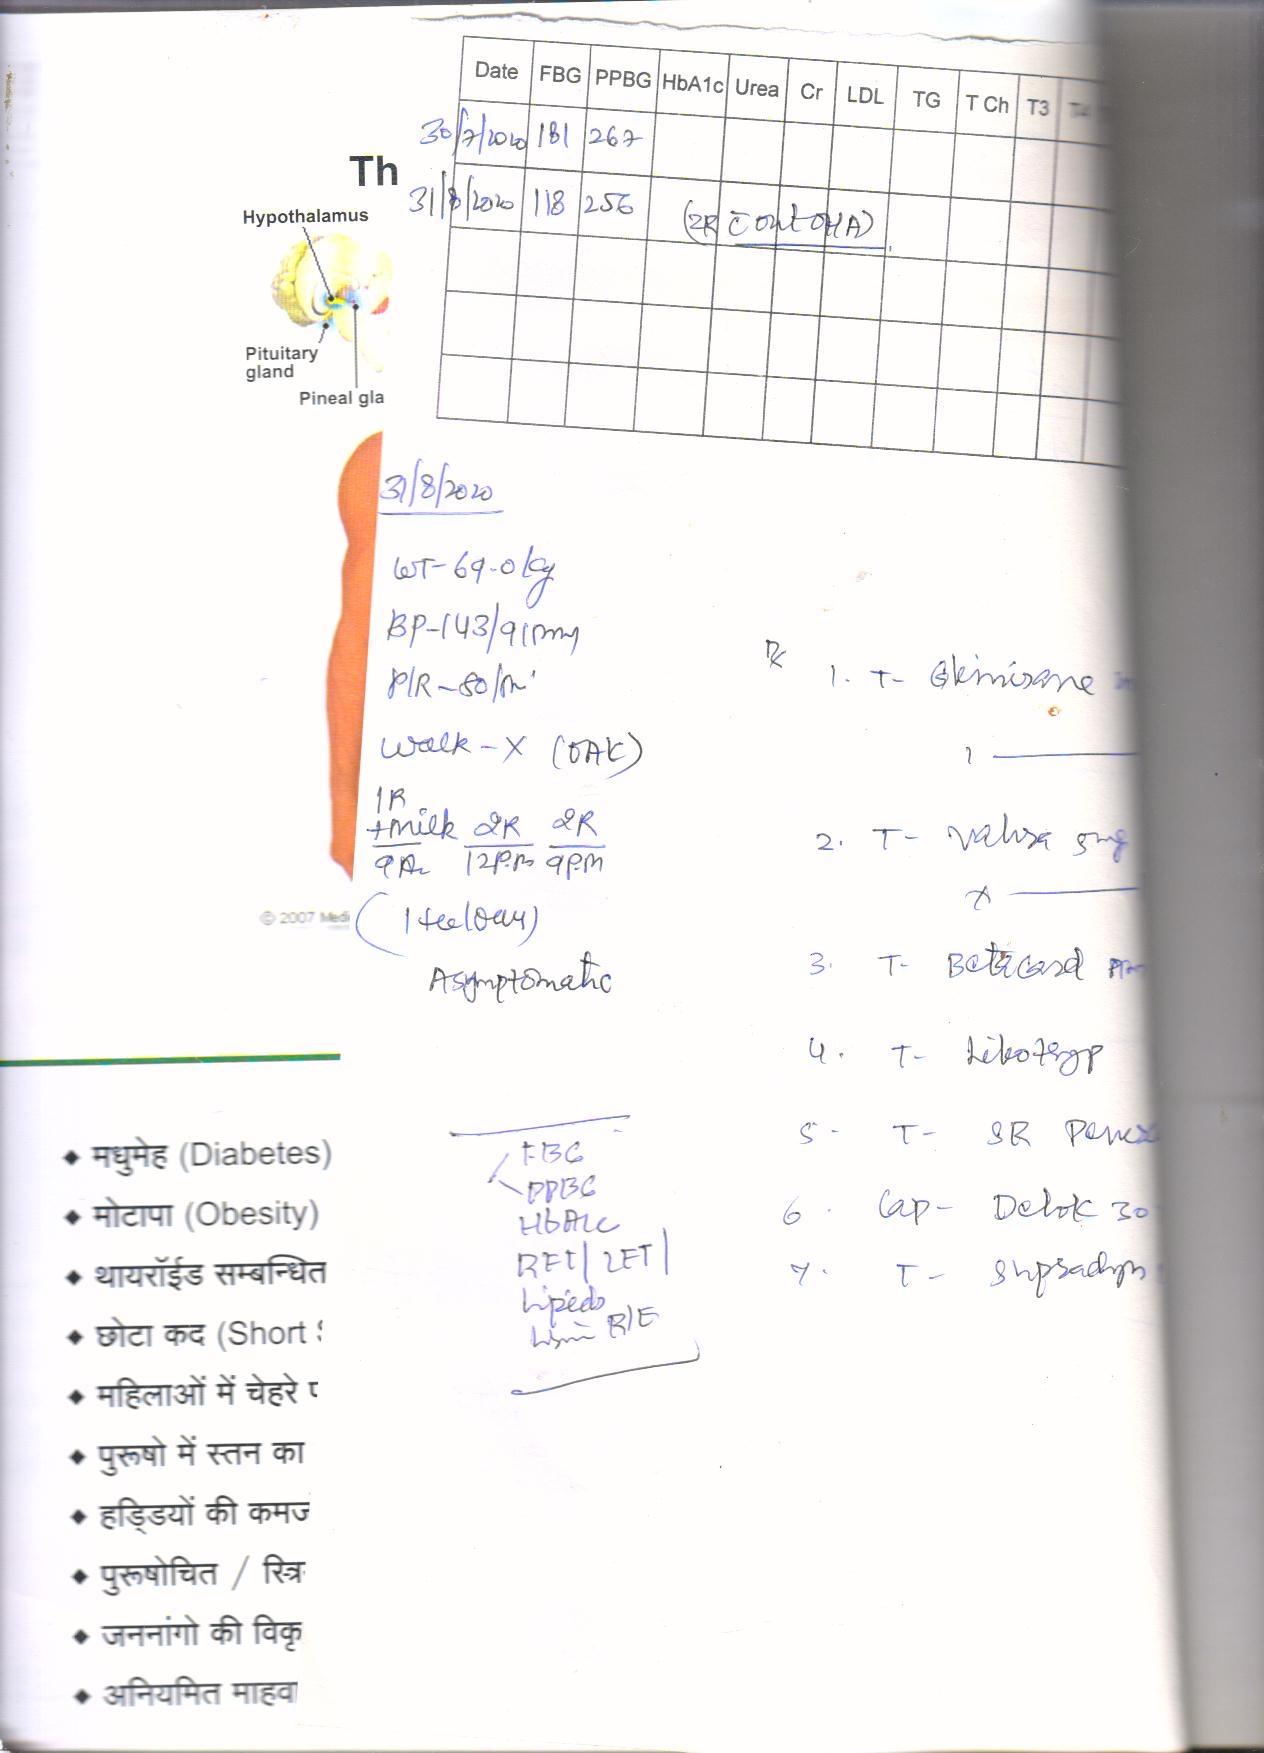 Date FBG PPBG HbA1c Urea Cr LDL TG T Ch T3 T4
30/7/2020 181 267
31/8/2020 118 256 (2R c̄ cont OHA)
Th
Hypothalamus
Pituitary
gland
Pineal gla
31/8/2020
WT-69.0kg
BP-143/91mmg
P/R-80/m'
Walk-X (OAK)
1R
+milk 2R 2R
9A 12P.M 9PM
(1 tea/day)
Asymptomatic
© 2007 Medi
Rx
1. T-
1
2. T- Valvsa 5mg
3. T- Betacard
4. T-
5. T- SR
6. Cap- Delok 30
7. T-
FBG
PPBG
HbA1c
RFT/LFT/
Lipids
R/E
♦ मधुमेह (Diabetes)
♦ मोटापा (Obesity)
♦ थायरॉईड सम्बन्धित
♦ छोटा कद (Short S
♦ महिलाओं में चेहरे प
♦ पुरूषो में स्तन का
♦ हड्डियों की कमज
♦ पुरूषोचित / स्त्रि
♦ जननांगो की विकृ
♦ अनियमित माहवा